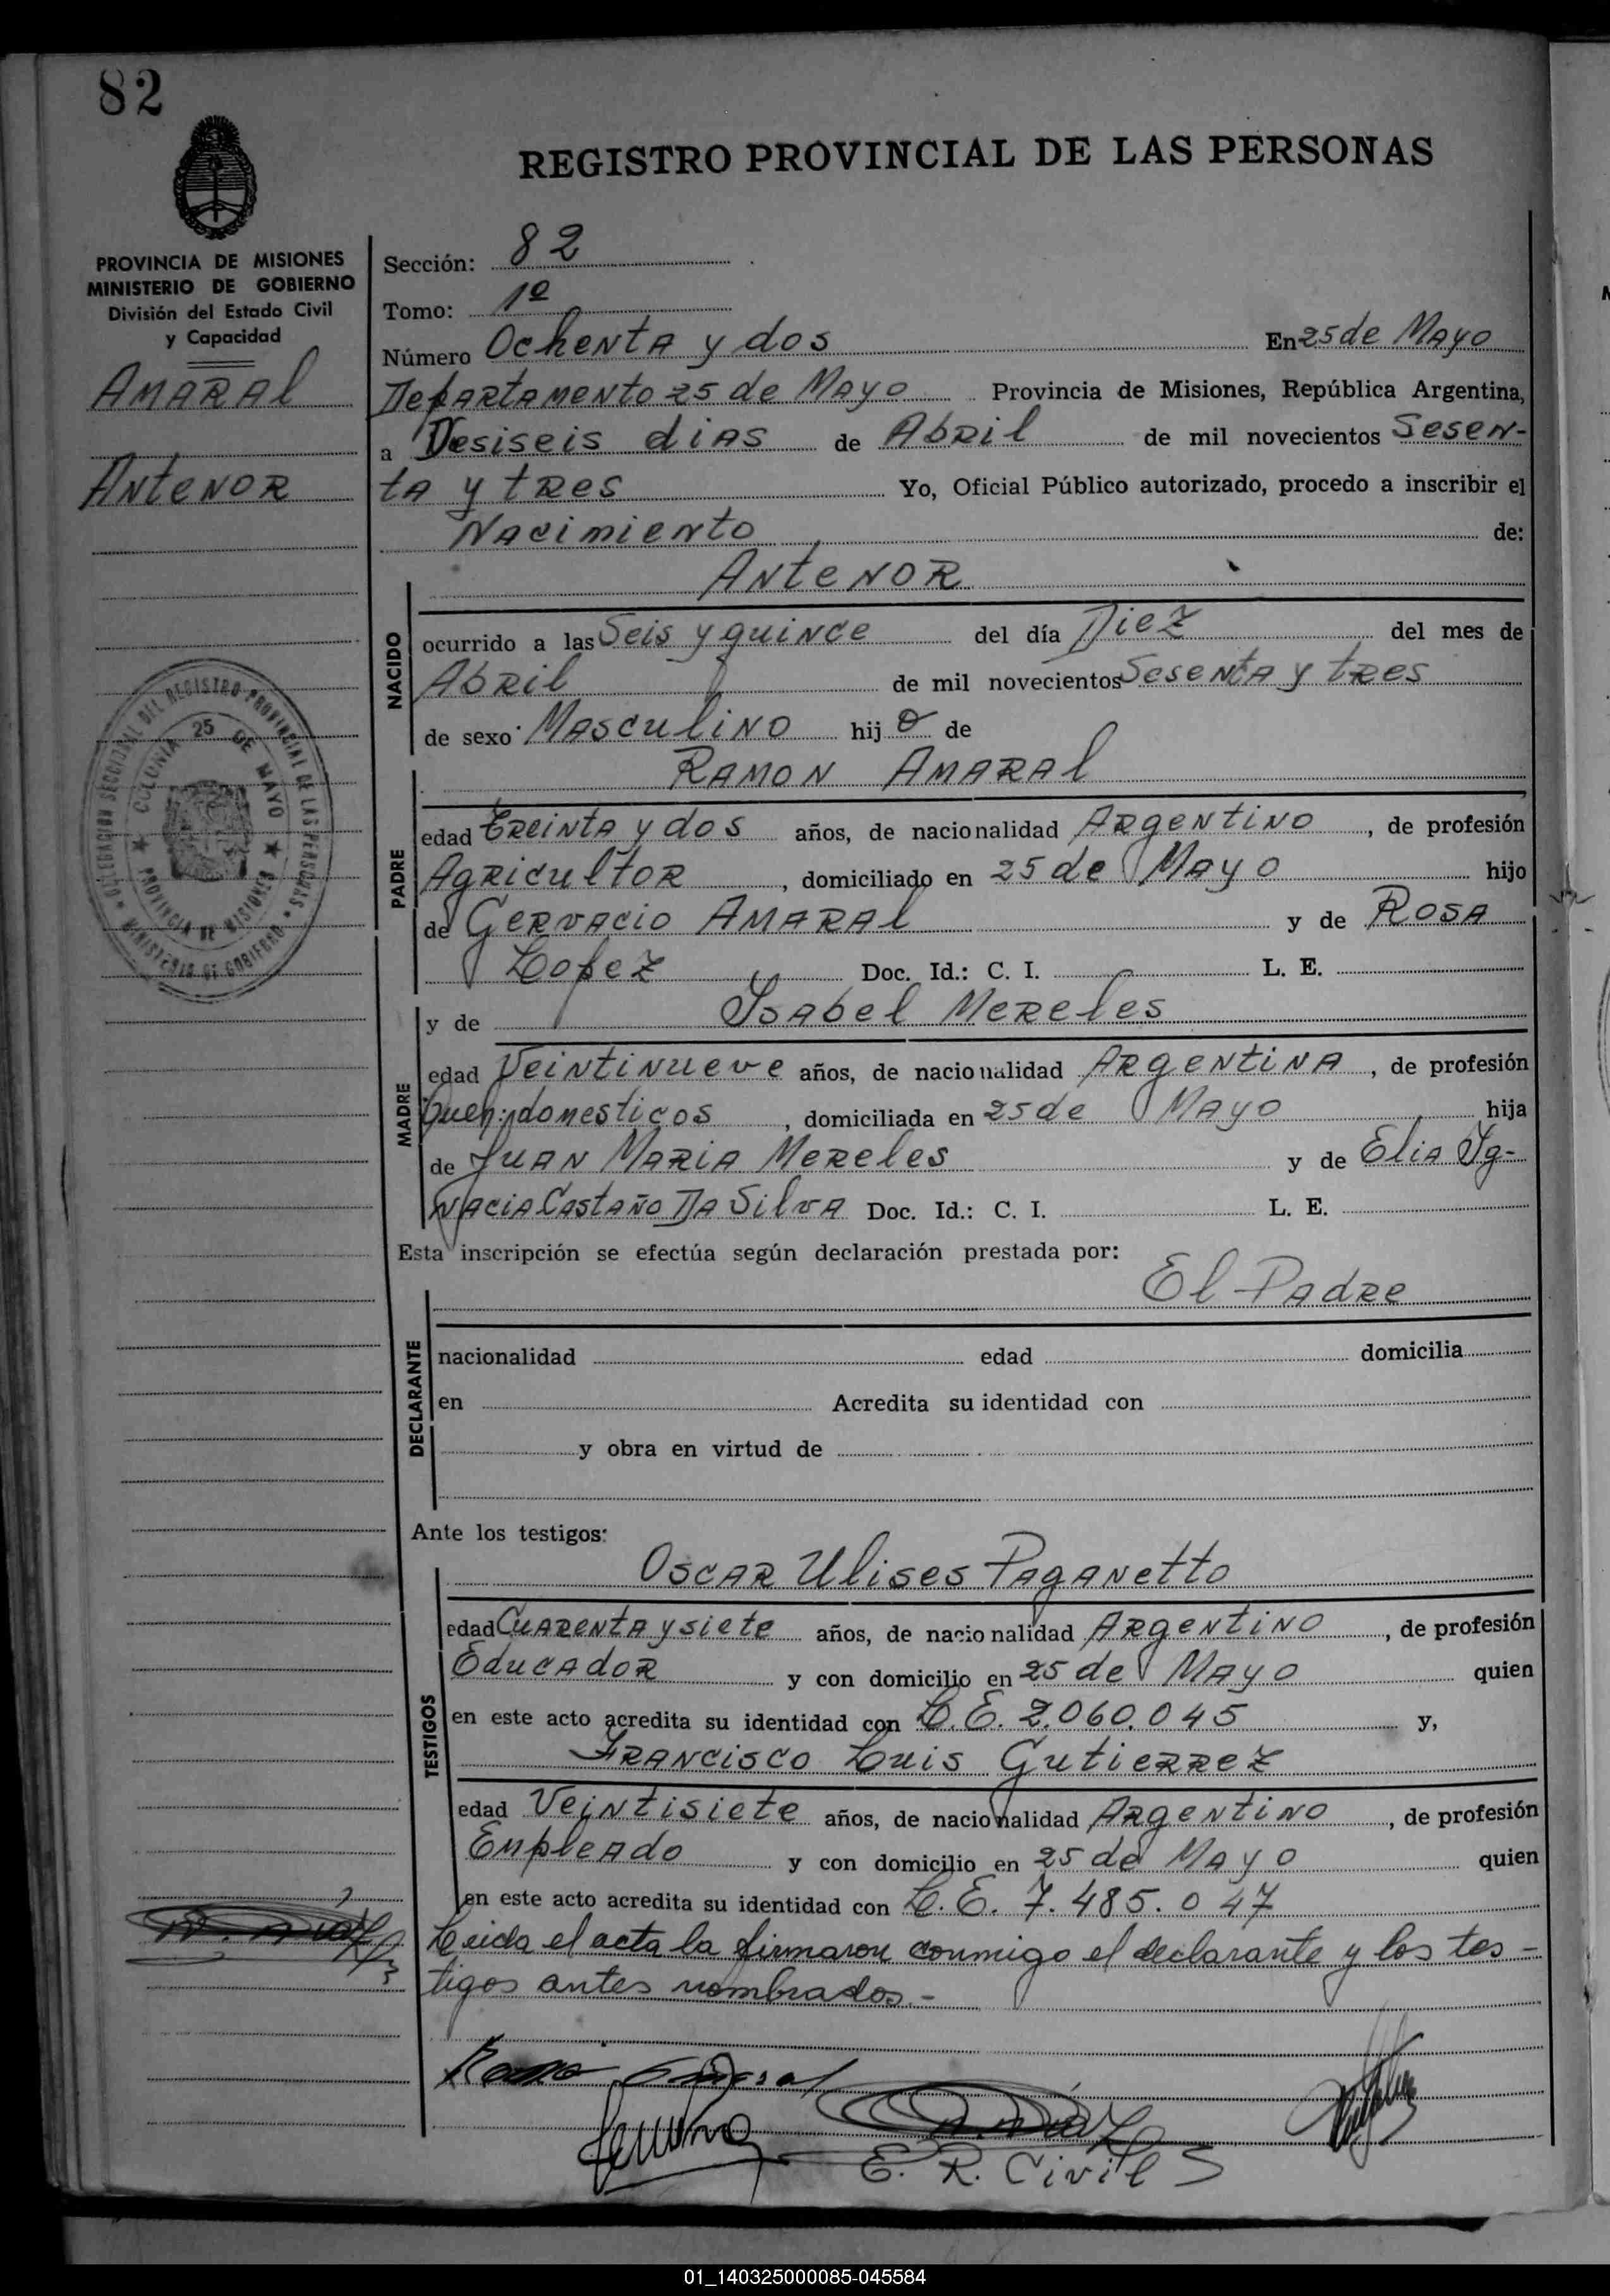 82
REGISTRO PROVINCIAL DE LAS PERSONAS
PROVINCIA DE MISIONES
MINISTERIO DE GOBIERNO
División del Estado Civil
y Capacidad
AMARAL
ANTENOR
DELEGACIÓN SECCIONAL DEL REGISTRO PROVINCIAL DE LAS PERSONAS
COLONIA 25 DE MAYO
PROVINCIA DE MISIONES
MINISTERIO DE GOBIERNO
Sección: 82
Tomo: 1º
Número Ochenta y dos En 25 de Mayo
Departamento 25 de Mayo Provincia de Misiones, República Argentina,
a Desiseis dias de Abril de mil novecientos Sesen-
ta y tres Yo, Oficial Público autorizado, procedo a inscribir el
Nacimiento de:
Antenor
NACIDO
ocurrido a las Seis y quince del día Diez del mes de
Abril de mil novecientos Sesenta y tres
de sexo Masculino hijo de
Ramon Amaral
PADRE
edad Treinta y dos años, de nacionalidad Argentino, de profesión
Agricultor, domiciliado en 25 de Mayo hijo
de Gervacio Amaral y de Rosa
Lopez Doc. Id.: C. I. L. E.
MADRE
y de Ysabel Mereles
edad Veintinueve años, de nacionalidad Argentina, de profesión
Queh. domesticos, domiciliada en 25 de Mayo hija
de Juan Maria Mereles y de Elia Yg-
nacia Castaño Da Silva Doc. Id.: C. I. L. E.
Esta inscripción se efectúa según declaración prestada por:
El Padre
DECLARANTE
nacionalidad edad domicilia
en Acredita su identidad con
y obra en virtud de
Ante los testigos:
Oscar Ulises Paganetto
TESTIGOS
edad Cuarenta y siete años, de nacionalidad Argentino, de profesión
Educador y con domicilio en 25 de Mayo quien
en este acto acredita su identidad con L.E. 2.060.045 y,
Francisco Luis Gutierrez
edad Veintisiete años, de nacionalidad Argentino, de profesión
Empleado y con domicilio en 25 de Mayo quien
en este acto acredita su identidad con L.E. 7.485.047
Leida el acta la firmaron conmigo el declarante y los tes-
tigos antes nombrados.-
E. R. Civil
01_140325000085-045584